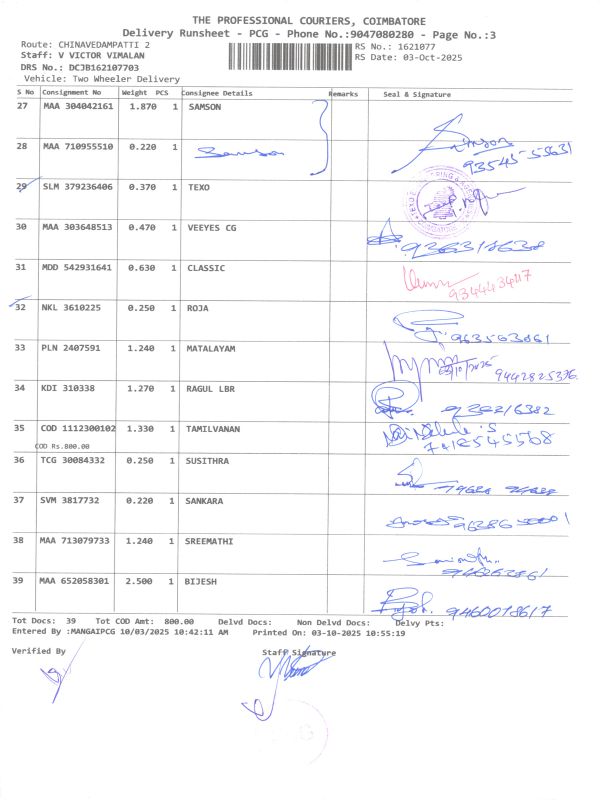 THE PROFESSIONAL COURIERS, COIMBATORE
Delivery Runsheet - PCG - Phone No.:9047080280 - Page No.:3
Route: CHINAVEDAMPATTI 2 RS No.: 1621077
Staff: V VICTOR VIMALAN RS Date: 03-Oct-2025
DRS No.: DCJB162107703
Vehicle: Two Wheeler Delivery
S No Consignment No Weight PCS Consignee Details Remarks Seal & Signature
27 MAA 304042161 1.870 1 SAMSON
28 MAA 710955510 0.220 1 Samson
Samson
93545-55631
29 SLM 379236406 0.370 1 TEXO
30 MAA 303648513 0.470 1 VEEYES CG
9363186308
31 MDD 542931641 0.630 1 CLASSIC
9344434117
32 NKL 3610225 0.250 1 ROJA
963563861
33 PLN 2407591 1.240 1 MATALAYAM
03/10/2025
9442825336
34 KDI 310338 1.270 1 RAGUL LBR
35 COD 1112300102 1.330 1 TAMILVANAN
COD Rs.800.00
7412545568
36 TCG 30084332 0.250 1 SUSITHRA
37 SVM 3817732 0.220 1 SANKARA
38 MAA 713079733 1.240 1 SREEMATHI
39 MAA 652058301 2.500 1 BIJESH
9460018617
Tot Docs: 39 Tot COD Amt: 800.00 Delvd Docs: Non Delvd Docs: Delvy Pts:
Entered By :MANGAIPCG 10/03/2025 10:42:11 AM Printed On: 03-10-2025 10:55:19
Verified By Staff Signature